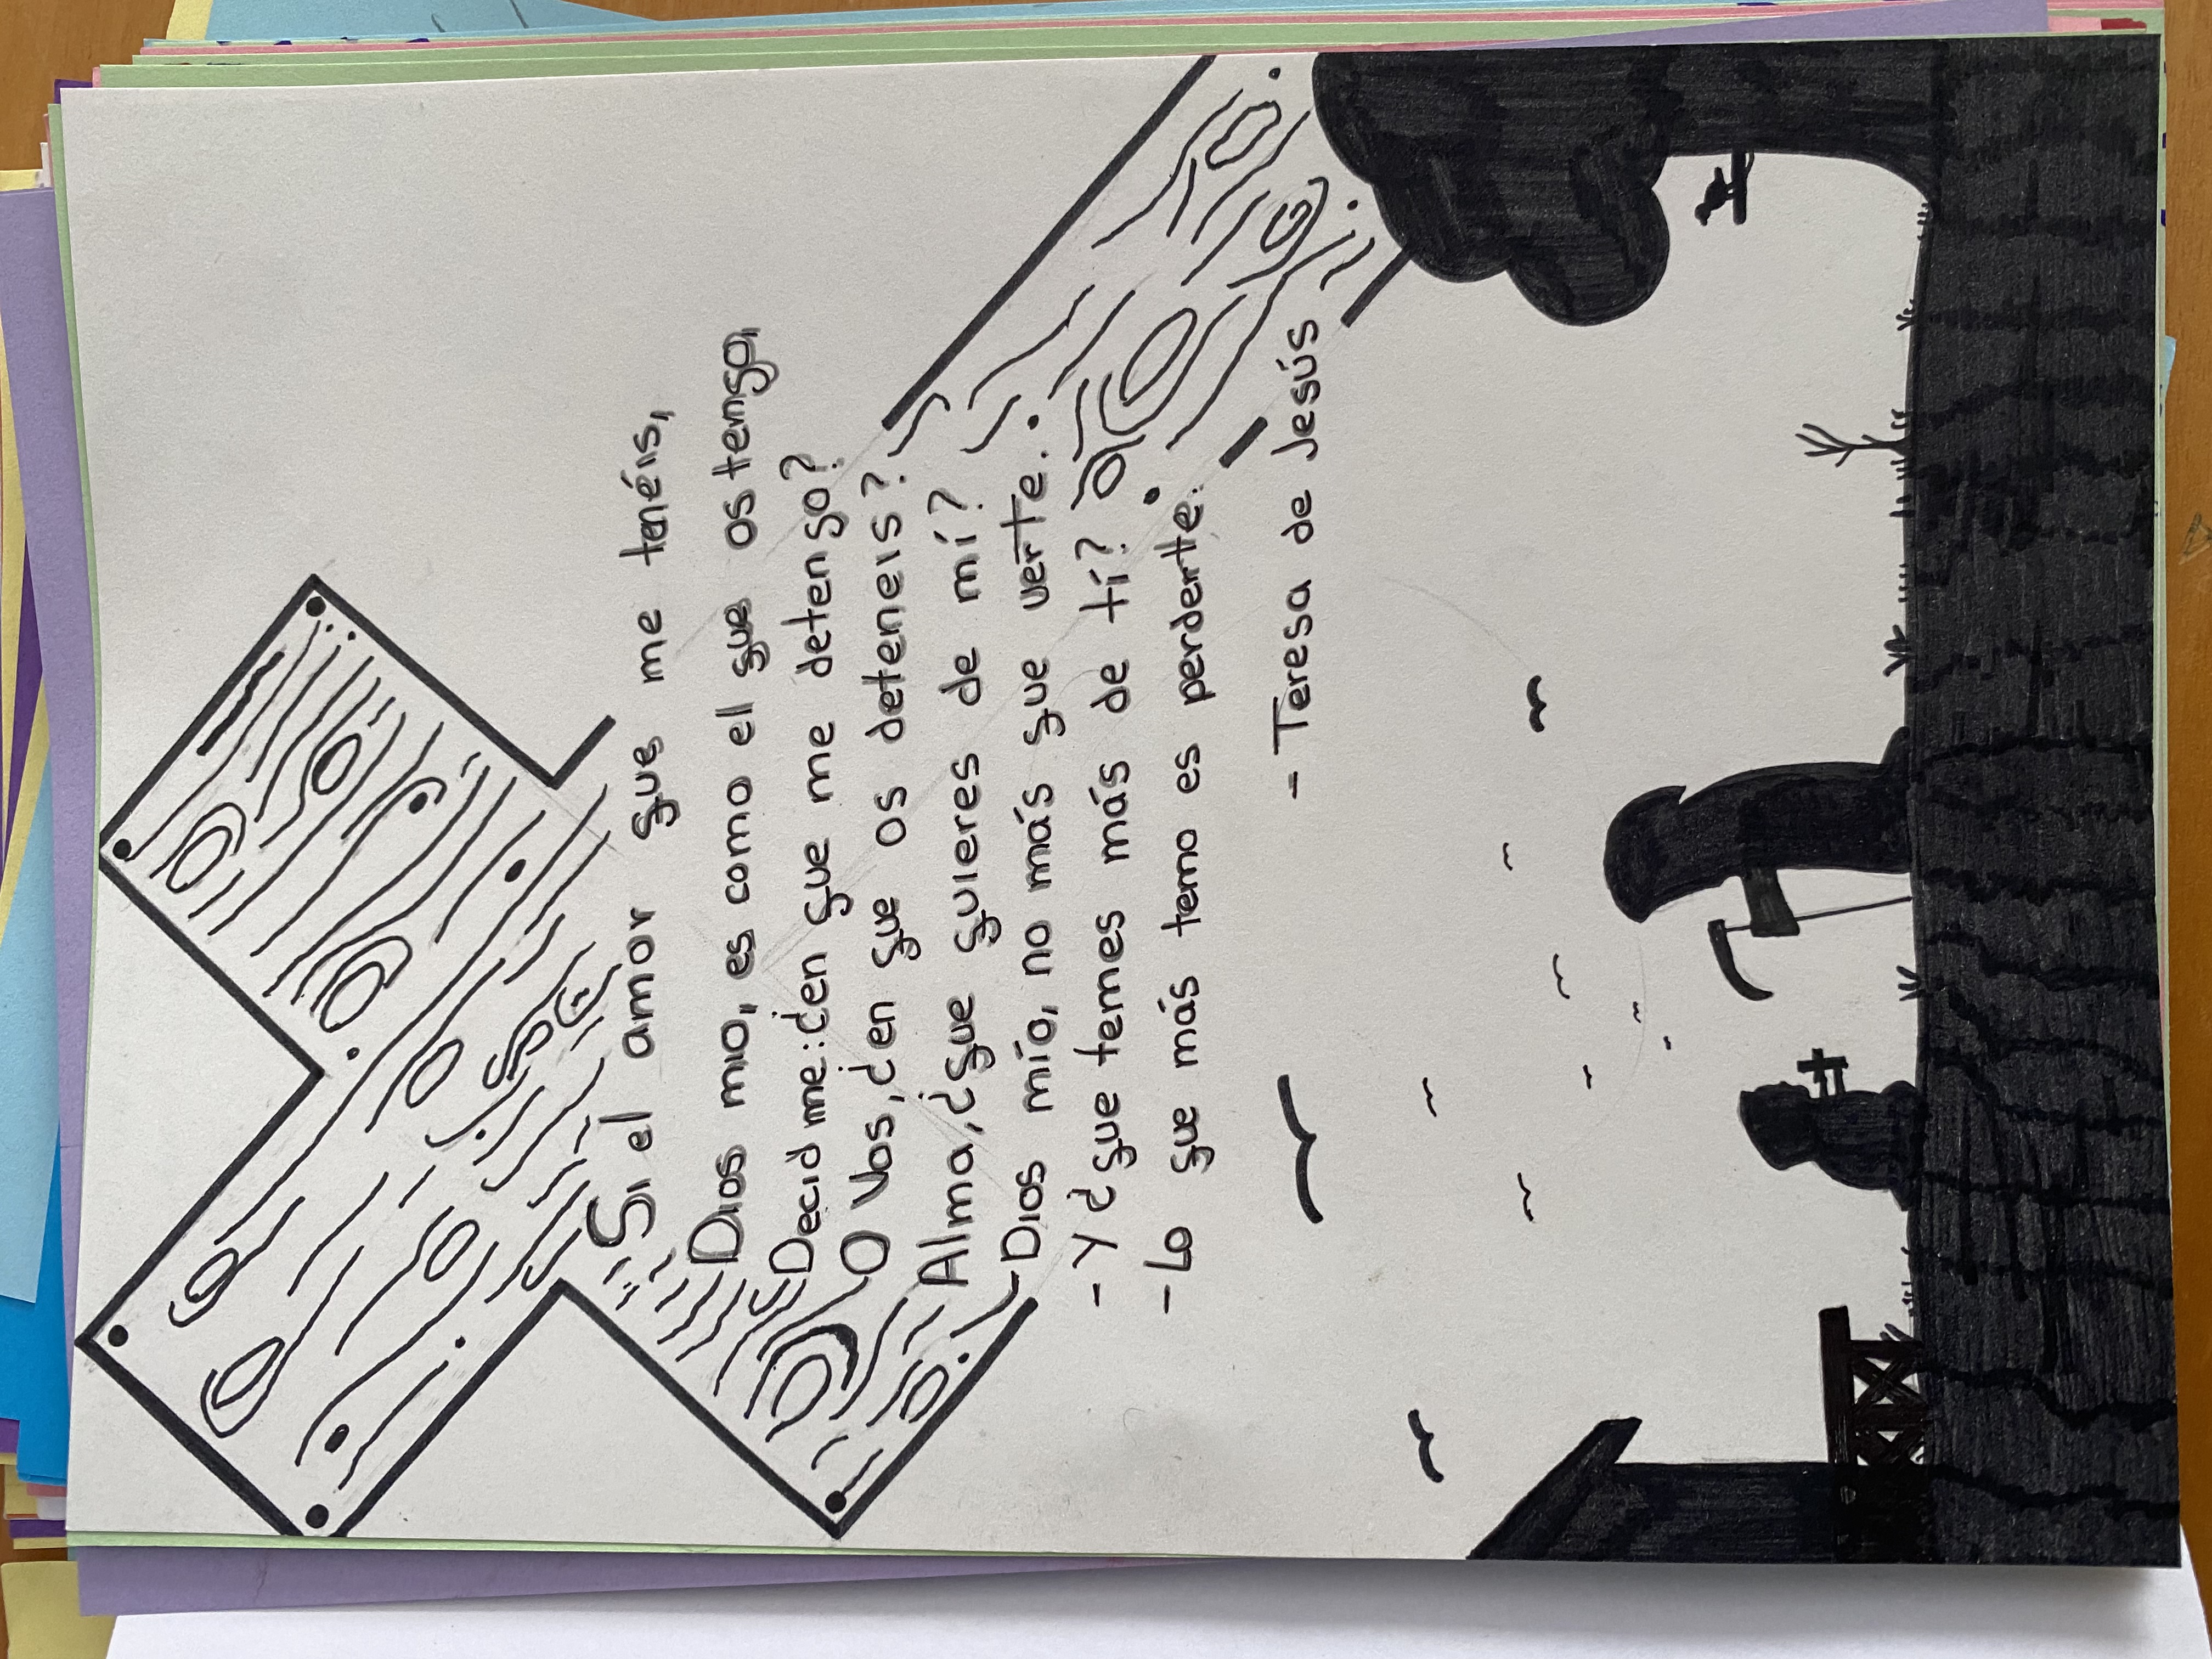 Si el amor que me tenéis,
Dios mio, es como el que os tengo,
Decidme: ¿en que me detengo?
O Vos, ¿en que os deteneis?
Alma, ¿que quieres de mí?
-Dios mío, no más que verte.
-Y ¿que temes más de tí?
-Lo que más temo es perderte.
- Teresa de Jesús